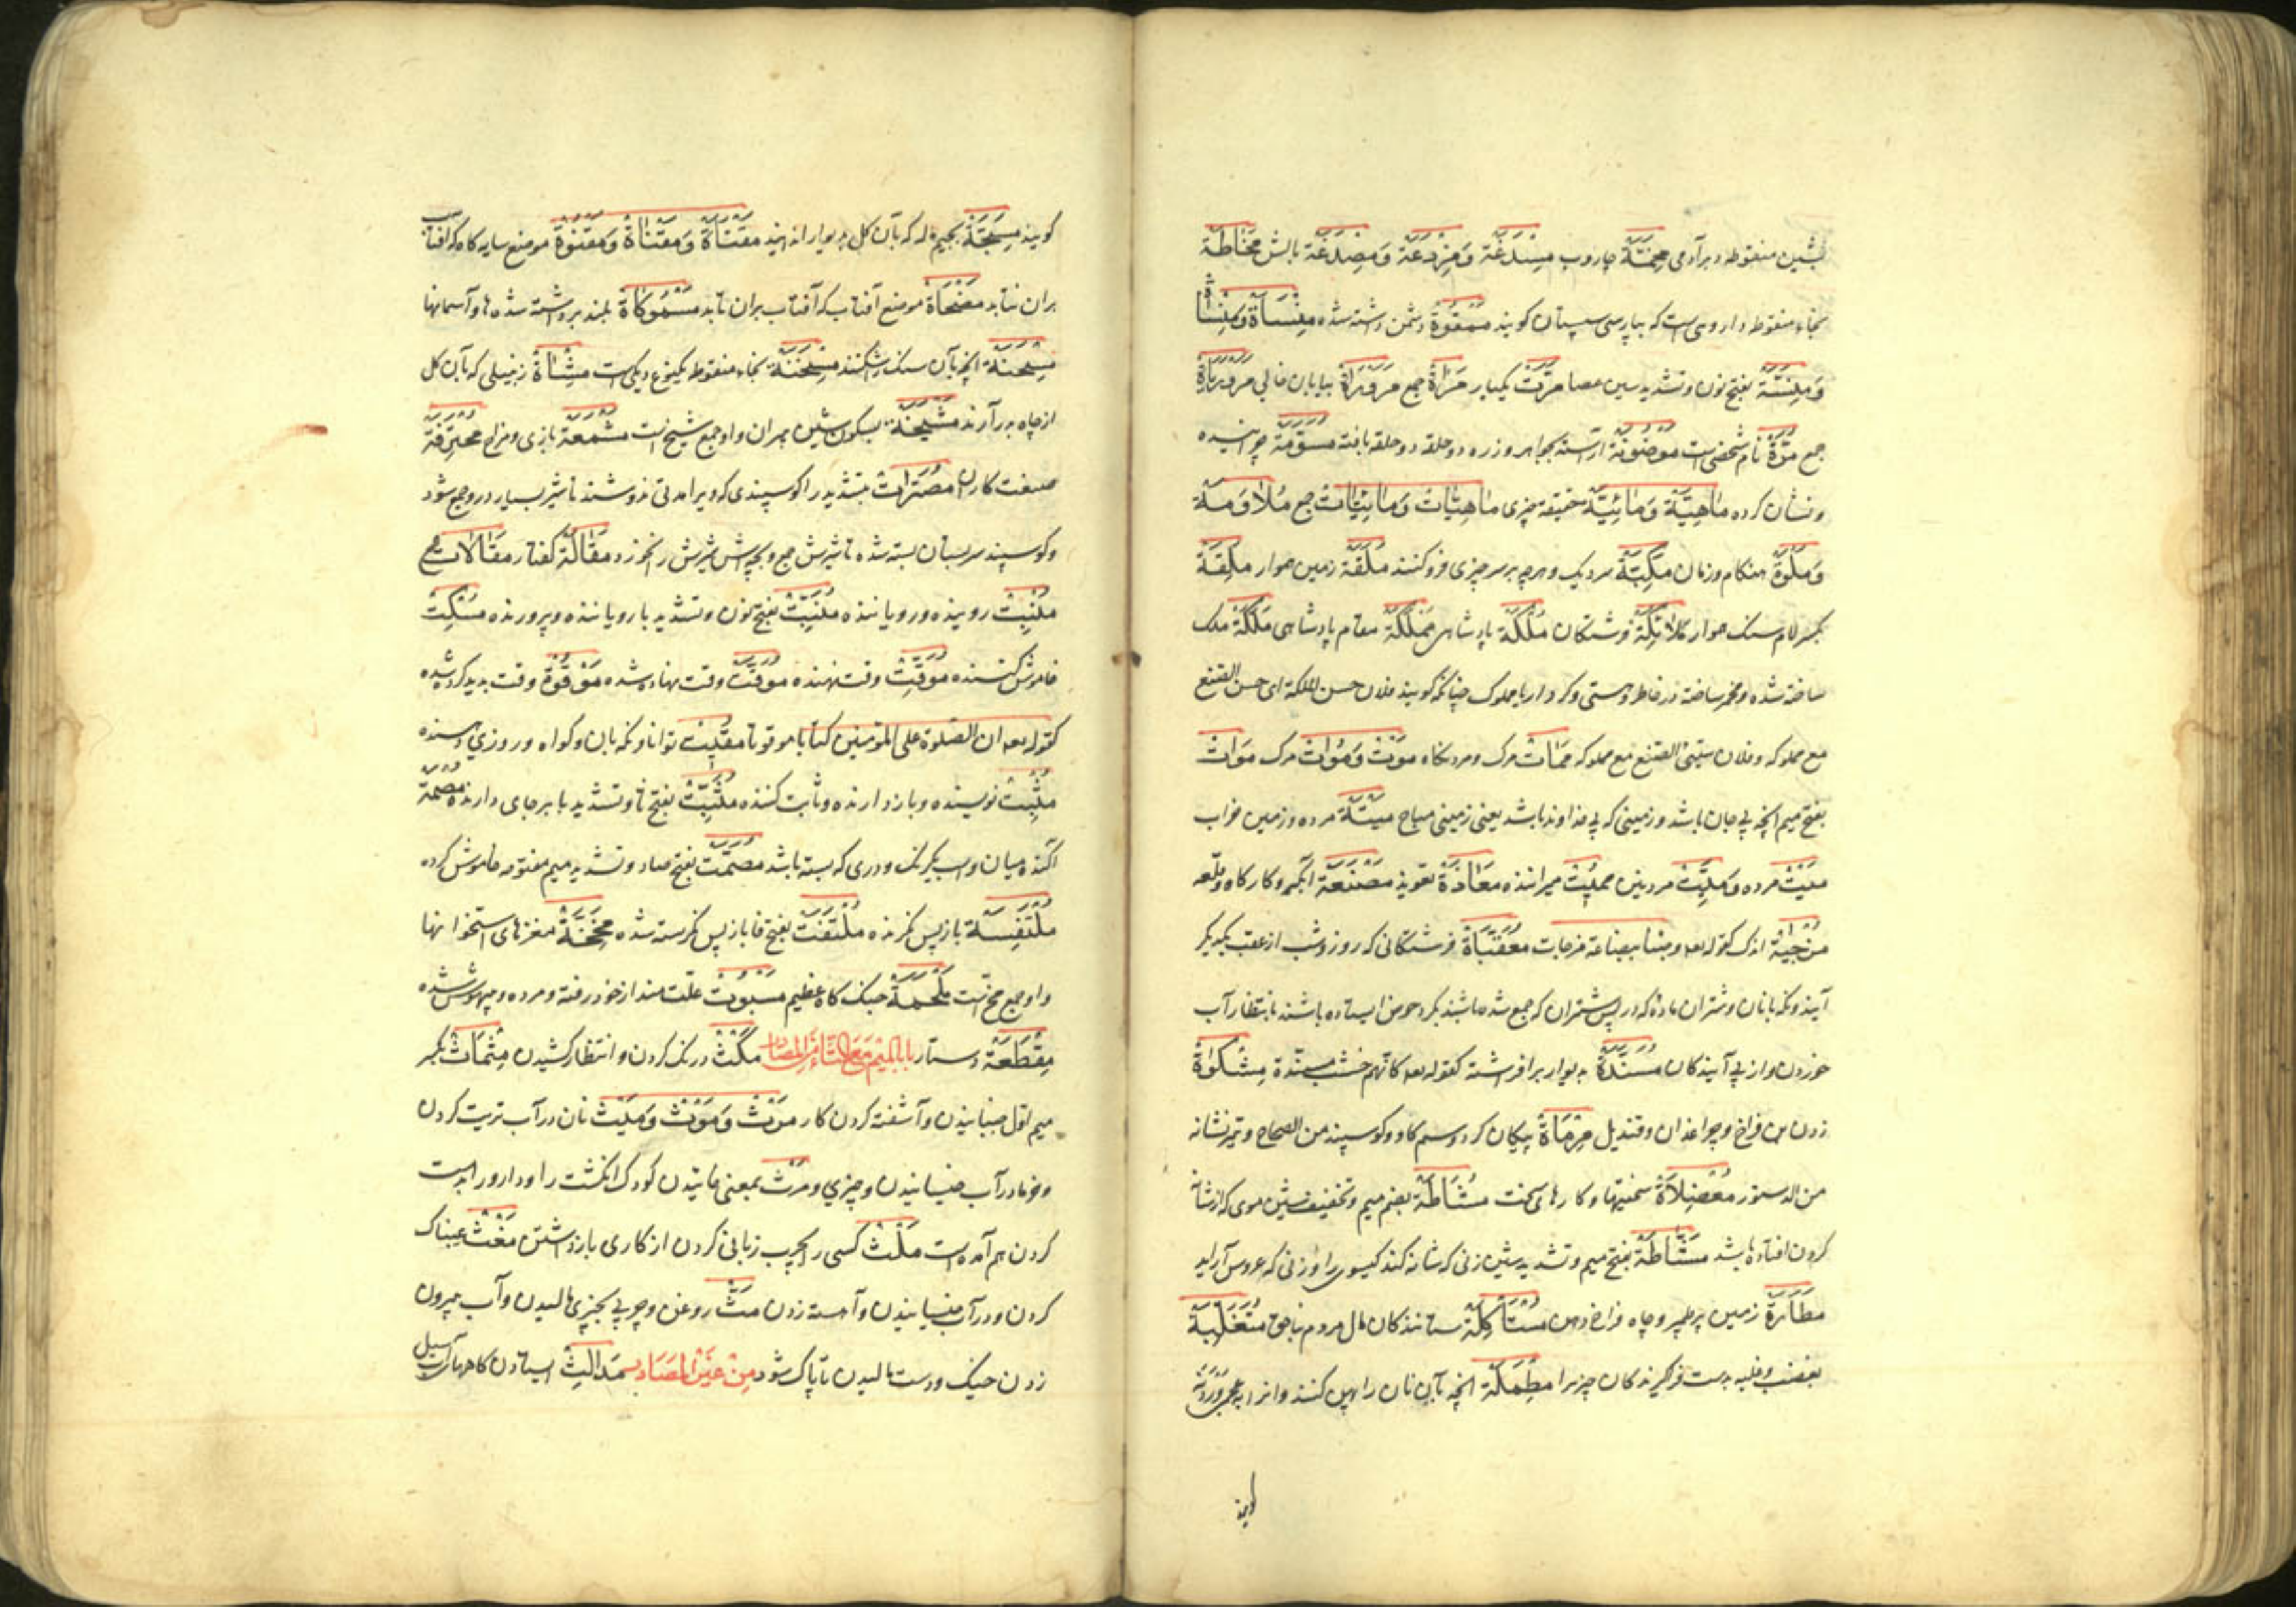 بشین منقوطه دبرآدمی مِحَمَّة جاروب مِسْدَغَة وَمِزْدَغَة وَمِصْدَغَة بالش مُخَاطَة
بخاء منقوطه داروی است که بپارسی سپستان کویند مَمْقُوْة دشمن داشته شده مِنْسَأَة وَمِنْسَاة
بفتح نون وتشدید سین عصا مَرَّت یکبار مَرَّاة جمع بیابان خالی
جمع مَرَّة نام شخصی است مَوْضُوْنَة آراسته بجواهر وزره دو حلقه دو حلقه بافته مُسَوَّمَة چرانیده
ونشان کرده مَاهِیَّة وَمَائِیَّة حقیقة چیزی مَاهِیَّات وَمَائِیَّات جمع مُلَاوَة
وَمَلْوَة هنکام وزمان مِکَبَّة سردیک وهرچه بر سر چیزی فرو کنند مَلَقَة زمین هموار مَلِقَة
بکسر لام سنک هموار مَلَائِکَة فرشتکان مُلْکَة پادشاهی مَمْلَکَة مقام پادشاهی مَلَکَة ملک
ساخته شده ومخمر ساخته در خاطر وهستی وکردار با مملوک چنانکه کویند فلان حسن الملکة ای حسن الصنع
مع مملوکه وفلان سیّئ الصنع مع مملوکه مَمَات مرک ومردنکاه مَوْت وَمُوَات مرک مَوَات
بفتح میم آنچه بی جان باشد وزمینی که بی خداوند باشد یعنی زمینی مباح مَیْتَة مرده وزمین خراب
مَیْت مرده وَمَیِّت مردنی مُمِیْت میراننده مَعَاذَة تعویذ مَصْنَعَة آبکیر وکارکاه وقلعه
مُزْجٰیة اندک کقوله تعه وجئنا ببضاعة مزجات مُعَقِّبَاة فرشتکانی که روز وشب از عقب یکدیکر
آیند ونکهبانان وشتران ماده که در پس شتران که جمع شده باشند بکرد حوض ایستاده باشند بانتظار آب
خوردن واز پی آیندکان مُسَنَّدَة بدیوار برافراشته کقوله تعه کانّهم خشب مسنّدة مِشْکٰوة
روزن فراخ وچراغدان وقندیل مِرْمَاة پیکان کرد وسم کاو وکوسپند من الصحاح وتیر نشانه
من الدستور مُعْضِلَاة سختیها وکارهای سخت مُشَاطَة بضم میم وتخفیف شین موی که از شانه
کردن افتاده باشد مَشَّاطَة بفتح میم وتشدید شین زنی که شانه کند کیسوی را وزنی که عروس آراید
مَطَارَة زمین پر وچاه فراخ دهن مُسْتَأْکِلَة ستانندکان مال مردم بناحق مُتَغَلِّبَة
بغضب وغلبه بدست فراکیرندکان چیزیرا مِطْمَلَة آنچه بآن نان را پهن کنند وانرا
کویند مِسَجَّة بجیم ماله که بآن کل بدیوار اندایند مَقْنَأَة وَمَقْنَاة وَمَقْنُوَة موضع سایه کاه که آفتاب
بران نتابد مَضْحَاة موضع آفتاب که آفتاب بران تابد مَسْمُوکَاة بلند برداشته شده ها وآسمانها
آنچه بآن سنک را شکنند مِسْخَنَة بخاء منقوطه یکنوع دیکی است مِشْآة زنبیلی که بآن کل
از چاه برآرند مَشْیَخَة بسکون شین پیران واو جمع شیخ است مَشْمَعَة بازی ومزاح
صنعت کاران مُصَرَّات بتشدید را کوسپندی که ویرا مدتی ندوشند تا شیر بسیار درو جمع شود
وکوسپند سر پستان بسته شده تا شیرش جمع وبچه اش شیرش را نخورد مَقَالَة کفتار مَقَالَات جمع
مُنْبِت روینده ورویاننده مُنَبِّت بفتح نون وتشدید با رویاننده وپرورنده مُسْکِت
خاموش کننده مُوَقِّت وقت نهنده مُوَقَّت وقت نهاده شده مَوْقُوْة وقت پدید کرده شده
کقوله تعه ان الصلوة علی المؤمنین کتابا موقوتا مُقِیْت توانا ونکهبان وکواه وروزی دهنده
مُثْبِت نویسنده وبازدارنده وثابت کننده مُثَبِّت بفتح ثا وتشدید با برجای دارنده مُصْمَة
آکنده میان واسب یکرنک ودری که بسته باشد مُصَمَّت بفتح صاد وتشدید میم مفتوحه خاموش کرده
بازپس نکرنده مُلْتَفَت بفتح فا بازپس نکرسته شده مِخَخَة مغزهای استخوانها
واو جمع مخ است مَلْحَمَة جنک کاه عظیم مَسْبُوْت علّت مند از خود رفته ومرده وبیهوش شده
مِقْطَعَة دستار باب المیم مع الثاء من المصادر مَکْث درنک کردن وانتظار کشیدن مِثْمَاث بکسر
میم اوّل جنبانیدن وآشفته کردن کار مَرْث وَمَوْث وَمَیْث نان در آب تریت کردن
وخرما در آب خیسانیدن وچیزی ومَرْث بمعنی خائیدن کودک انکشت را ودارو را بدست
کردن هم آمده است مَلْث کسی را بچرب زبانی کردن از کاری بازداشتن مَغْث عیبناک
کردن ودر آب خیسانیدن وآهسته زدن مَثّ روغن وچربی بچیزی مالیدن وآب بیرون
زدن خیک ودست مالیدن تا پاک شود من غیر المصادر مَدَالِث ایستادن کاههای آب سیل